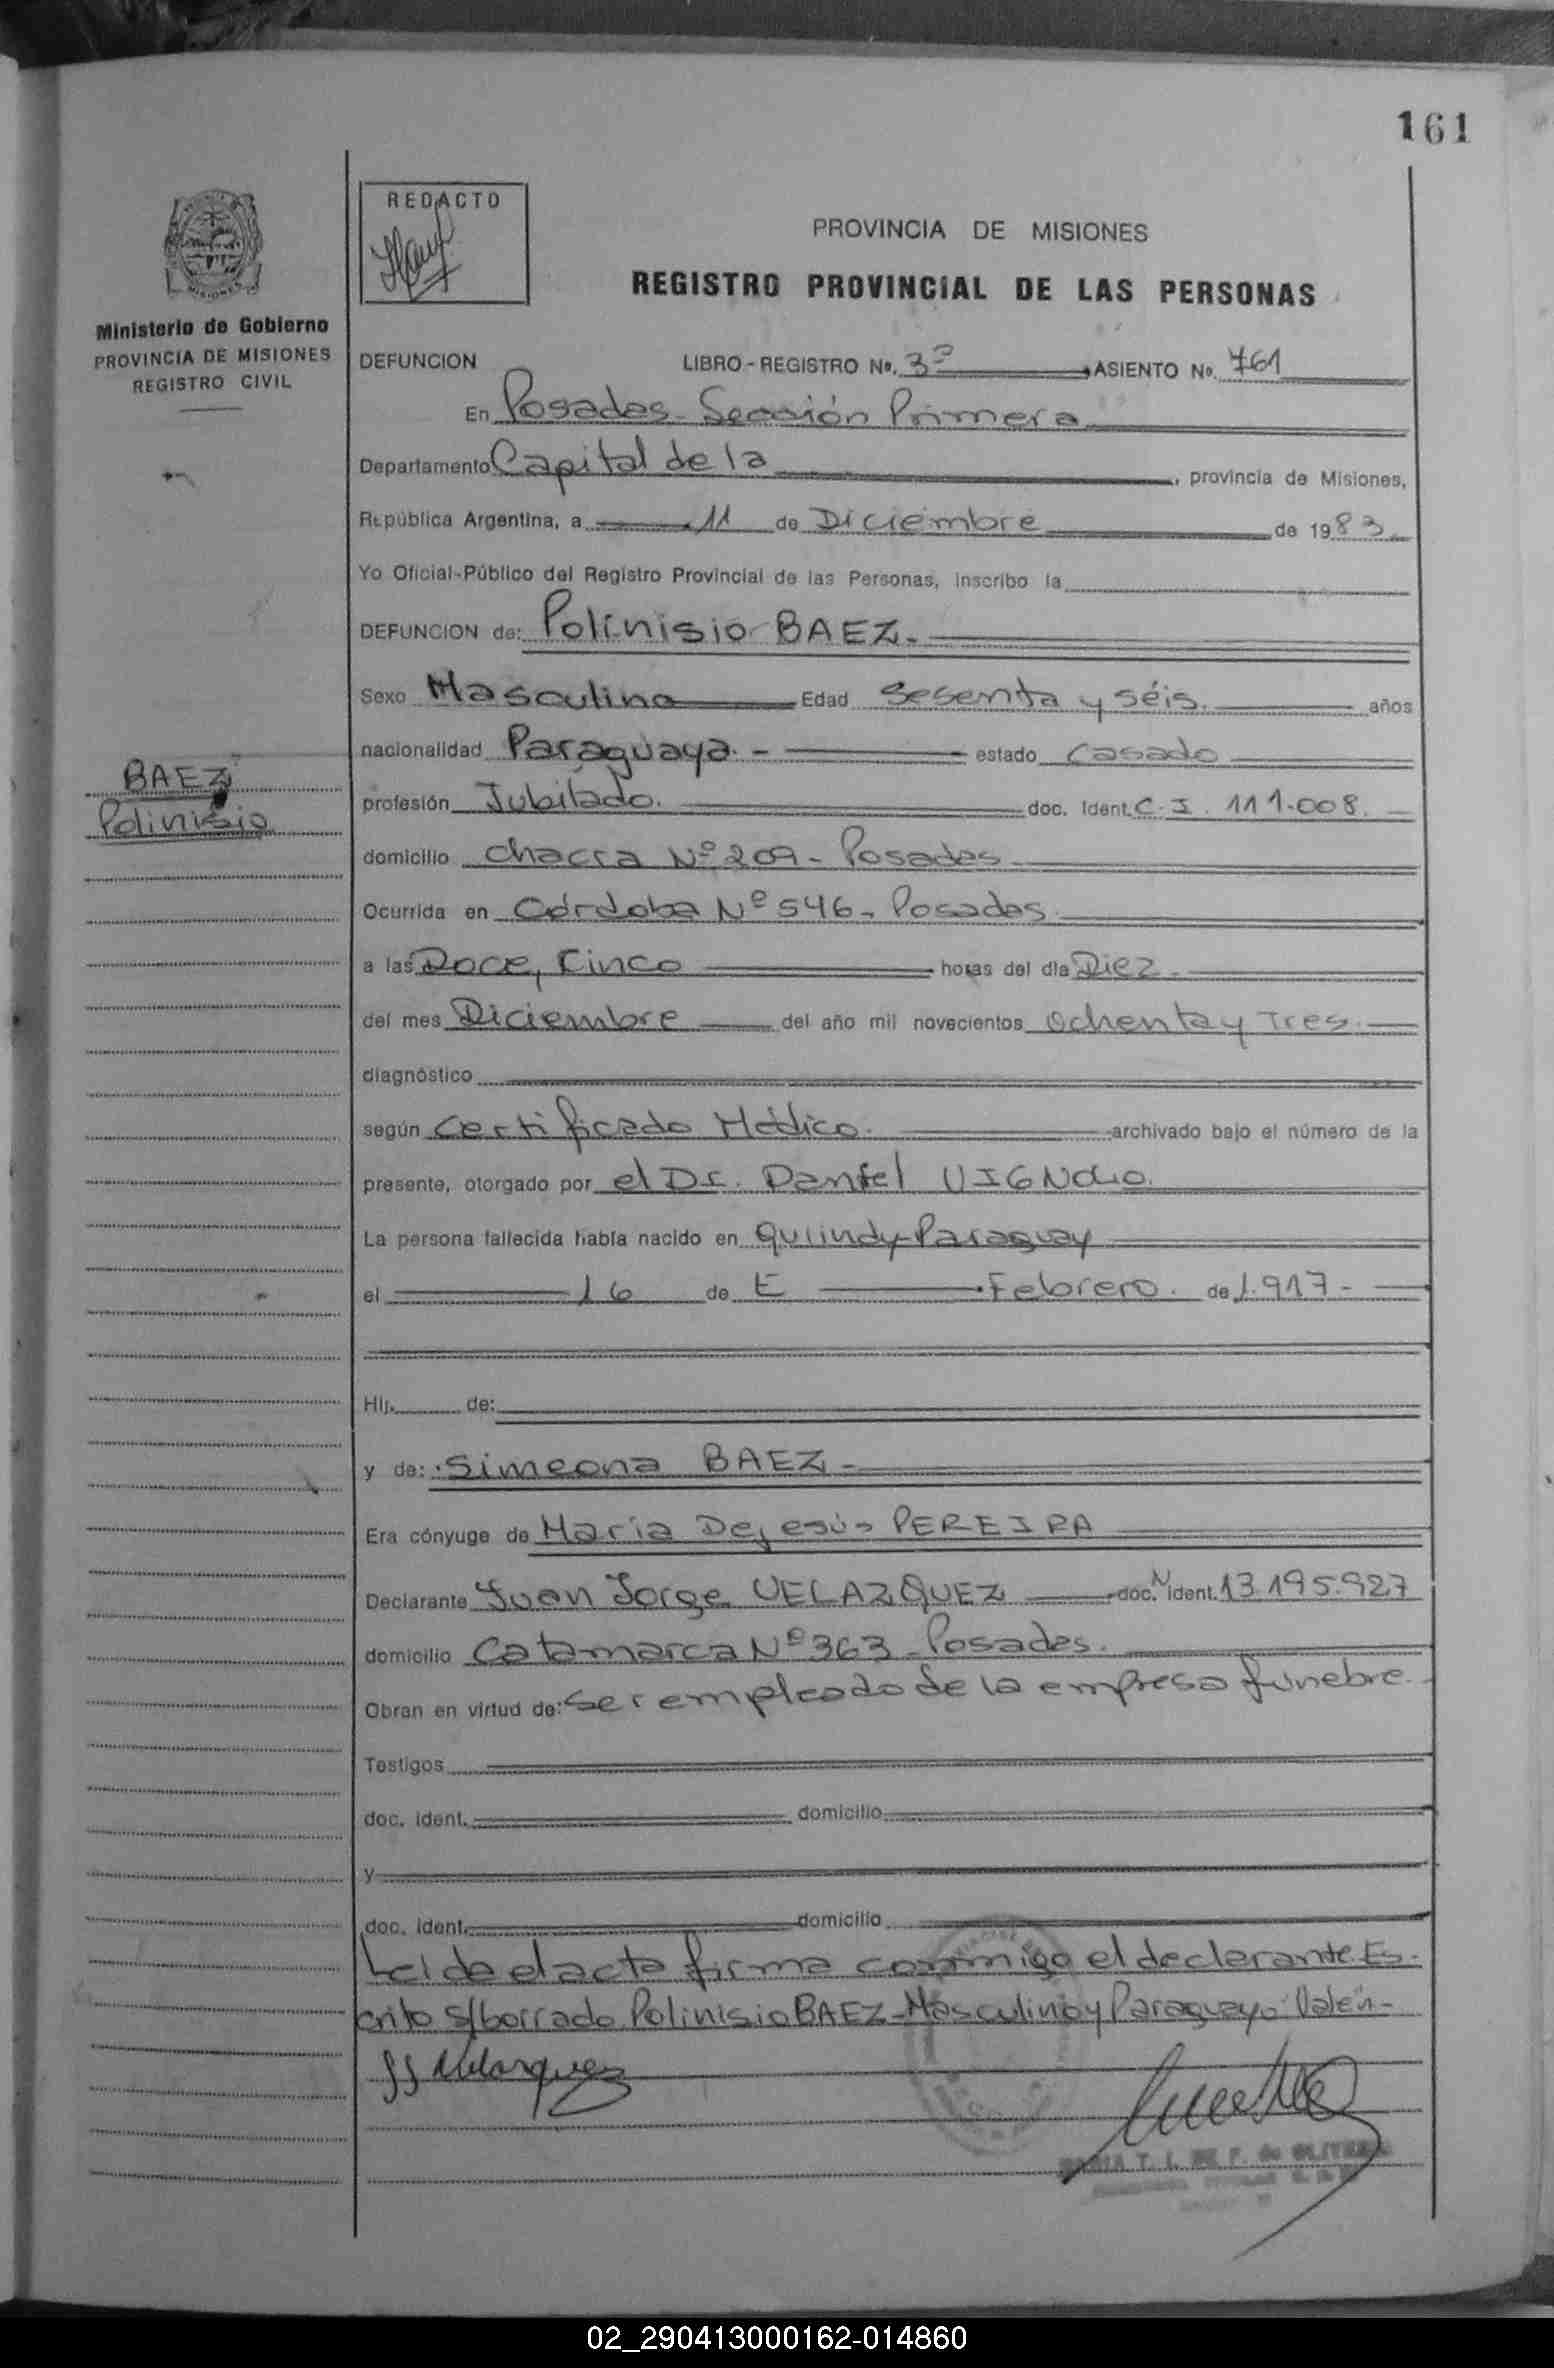 161
REDACTO
PROVINCIA DE MISIONES
REGISTRO PROVINCIAL DE LAS PERSONAS
MISIONES
Ministerio de Gobierno
PROVINCIA DE MISIONES
REGISTRO CIVIL
DEFUNCION LIBRO - REGISTRO No. 3º ASIENTO No. 761
En Posadas - Sección Primera
Departamento Capital de la , provincia de Misiones,
República Argentina, a 11 de Diciembre de 1983.
Yo Oficial-Público del Registro Provincial de las Personas, inscribo la
DEFUNCION de: Polinisio BAEZ.-
Sexo Masculino Edad Sesenta y séis. años
nacionalidad Paraguaya. - estado Casado
BAEZ
Polinisio
profesión Jubilado. doc. Ident. C. I. 111.008.
domicilio Chacra Nº 209 - Posadas
Ocurrida en Córdoba Nº 546 - Posadas
a las Doce, Cinco horas del día Diez.
del mes Diciembre del año mil novecientos ochenta y Tres.
diagnóstico
según Certificado Médico. archivado bajo el número de la
presente, otorgado por el Dr. Daniel
La persona fallecida había nacido en Quiindy - Paraguay
el 16 de E Febrero. de 1.917 -
Hij. de:
y de: Simeona BAEZ -
Era cónyuge de María Dejesús PEREIRA
Declarante Juan Jorge VELAZQUEZ doc. N ident. 13.195.927
domicilio Catamarca Nº 363 - Posadas.
Obran en virtud de: Ser empleado de la empresa fúnebre.
Testigos
doc. ident. domicilio
y
doc. ident. domicilio
Leida el acta firma conmigo el declarante. Es-
crito s/borrado Polinisio BAEZ - Masculino y Paraguayo Valen -
JJ Velazquez
T. L. DE F. de OLIVERA
02_290413000162-014860